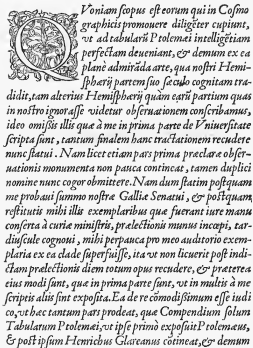 QVoniam scopus est eorum qui in Cosmo
graphicis promouere diligēter cupiunt,
vt ad tabularū Ptolemæi intelligētiam
perfectam deueniant, & demum ex ea
planè admirāda arte, qua nostri Hemi-
sphærij partem suo sæculo cognitam tra-
didit, tam alterius Hemisphærij quàm earū partium quas
in nostro ignorasse videtur obseruationem conscribamus,
ideo omißis illis quæ à me in prima parte de Vniuersitate
scripta sunt, tantum finalem hanc tractationem recudere
nunc statui. Nam licet etiam pars prima præclaræ obser-
uationis monumenta non pauca contineat, tamen duplici
nomine nunc cogor obmittere. Nam dum statim postquam
me probaui summo nostræ Galliæ Senatui, & postquam
restitutis mihi illis exemplaribus quæ fuerant iure manu
conserta à curiæ ministris, prælectionis munus incœpi, tar-
diuscule cognoui, mihi perpauca pro meo auditorio exem-
plaria ex ea clade superfuisse, ita vt non licuerit post indi-
ctam prælectionis diem totum opus recudere, & præterea
eius modi sunt, quæ in prima parte sunt, vt in multis à me
scriptis aliis sint exposita. Ea de re cōmodißimum esse iudi
co, vt hæc tantum pars prodeat, quæ Compendium solum
Tabularum Ptolemæi, vt ipse primò exposuit Ptolemæus,
& post ipsum Henrichus Glareanus cōtineat, & demum